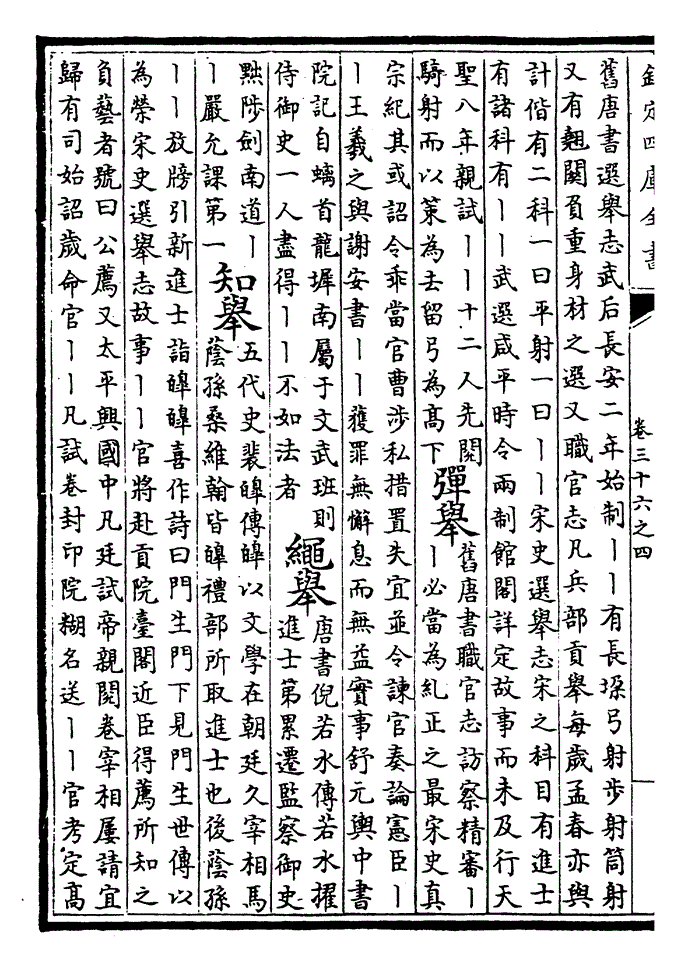 欽定四庫全書
卷三十六之四
舊唐書選舉志武后長安二年始制丨丨有長垜弓射歩射筒射
又有翹闗負重身材之選又職官志凡兵部貢舉每歲孟春亦與
計偕有二科一曰平射一曰丨丨宋史選舉志宋之科目有進士
有諸科有丨丨武選咸平時令兩制館閣詳定故事而未及行天
聖八年親試丨丨十二人先閱
騎射而以策為去留弓為髙下
彈舉
舊唐書職官志訪察精審丨
丨必當為糺正之最宋史真
宗紀其或詔令乖當官曹涉私措置失宜並令諫官奏論憲臣丨
丨王羲之與謝安書丨丨獲罪無懈息而無益實事舒元輿中書
院記自螭首龍墀南屬于文武班則
侍御史一人盡得丨丨不如法者
繩舉
唐書倪若水傳若水擢
進士第累遷監察御史
黜陟劍南道丨
丨嚴允課第一
知舉
五代史裴皥傳皥以文學在朝廷久宰相馬
䕃孫桑維翰皆皥禮部所取進士也後䕃孫
丨丨放牓引新進士詣皥皥喜作詩曰門生門下見門生世傳以
為榮宋史選舉志故事丨丨官將赴貢院臺閣近臣得薦所知之
負藝者號曰公薦又太平興國中凡廷試帝親閱卷宰相屢請宜
歸有司始詔歲命官丨丨凡試卷封印院糊名送丨丨官考定髙